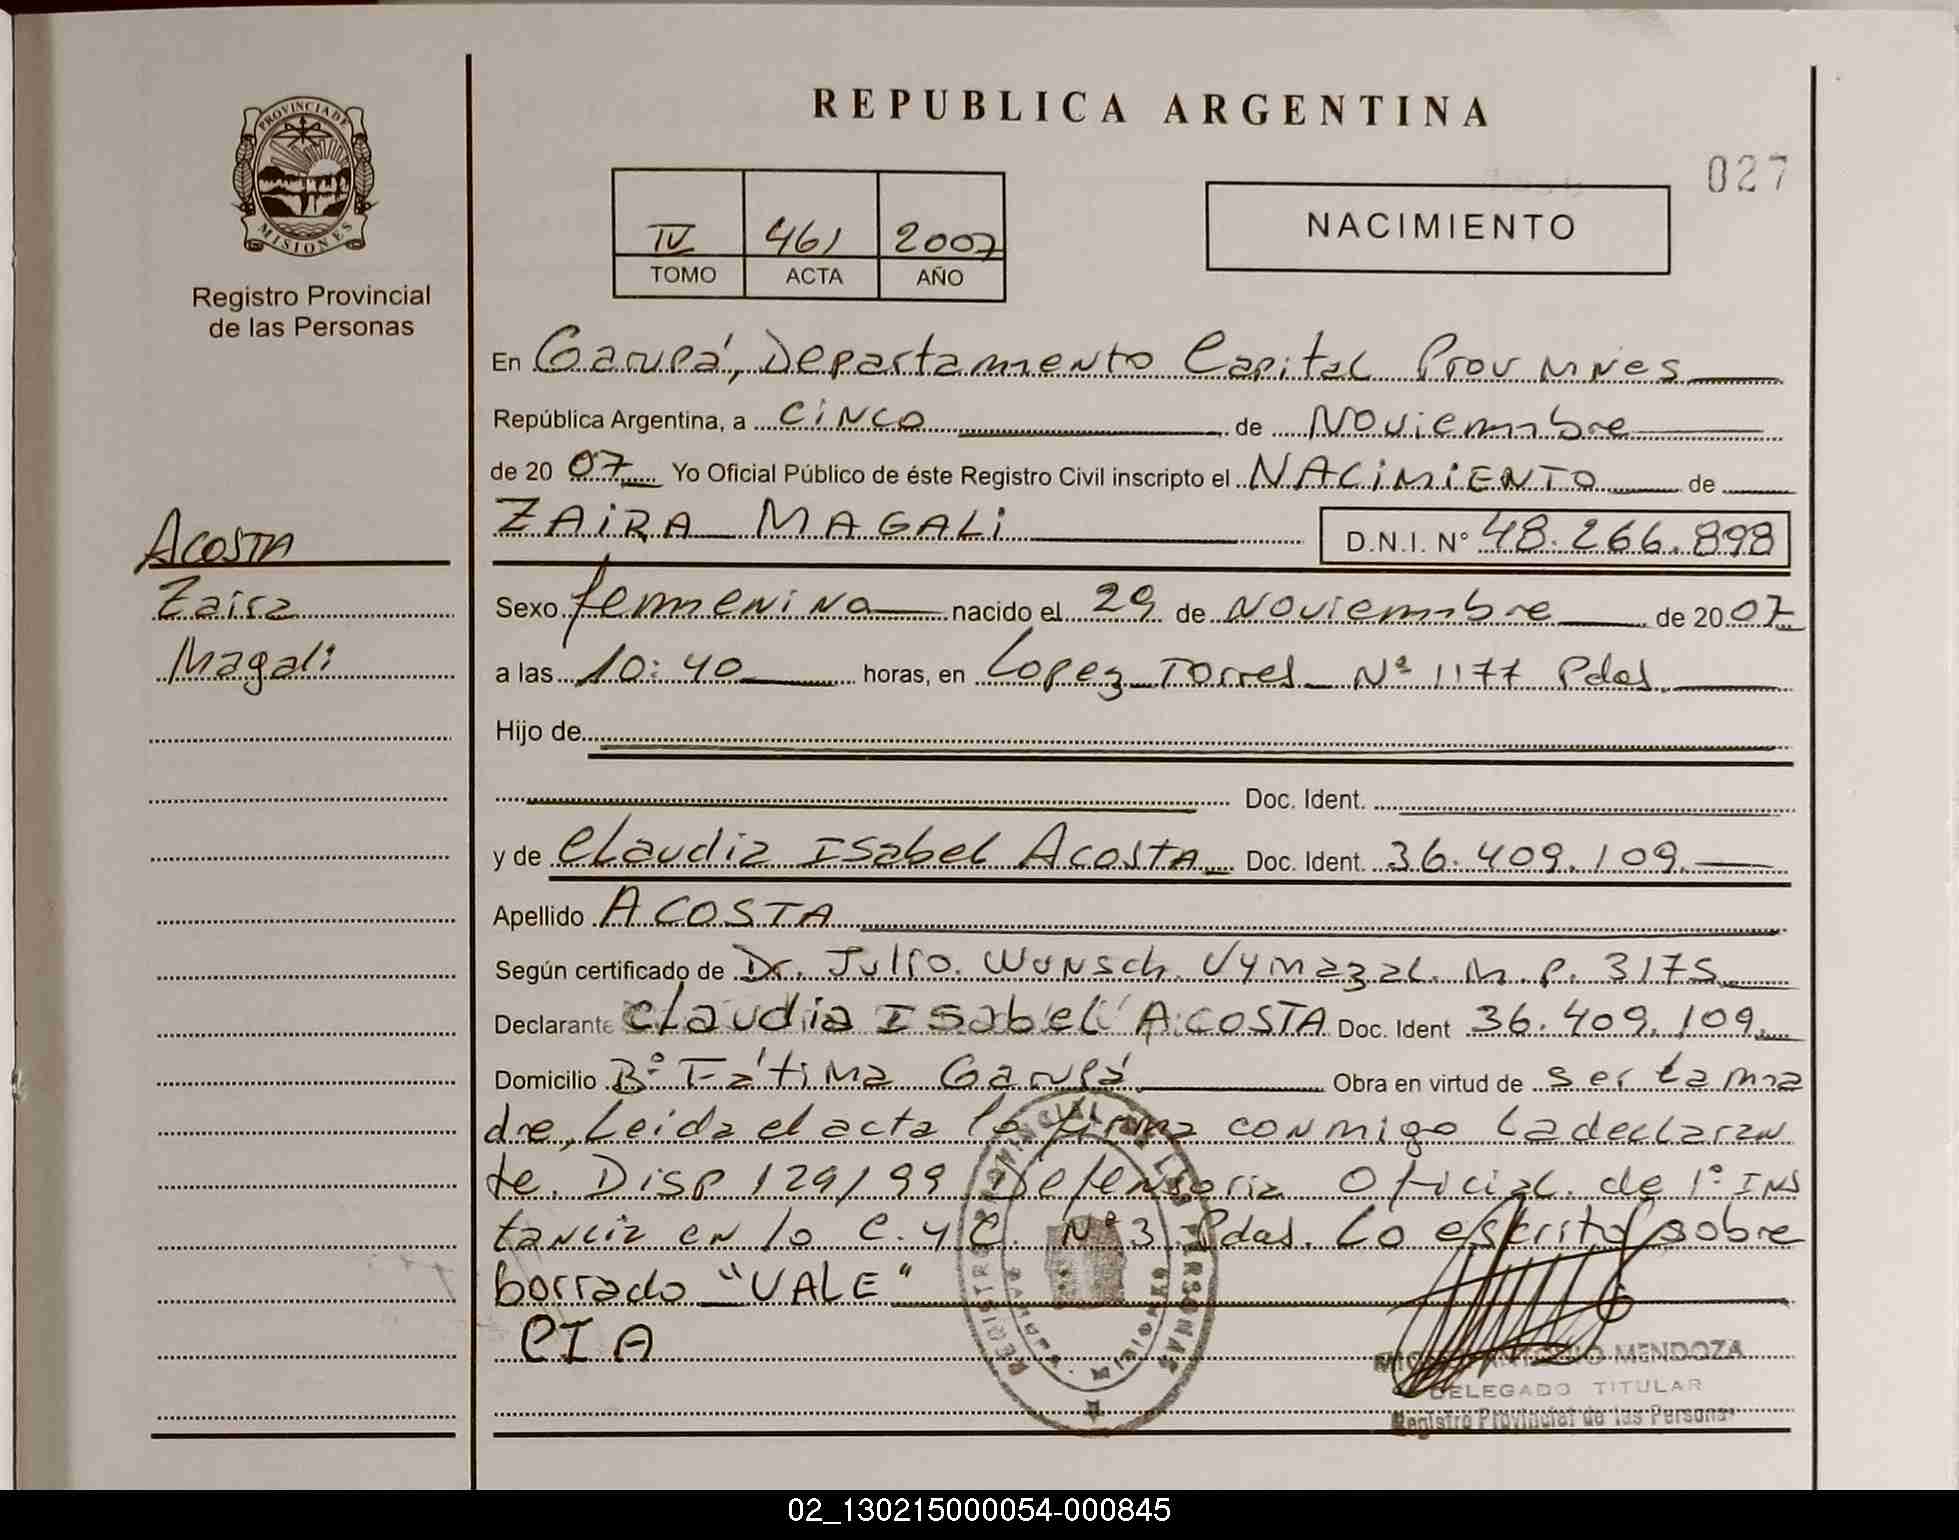 PROVINCIA DE
MISIONES
Registro Provincial
de las Personas
REPUBLICA ARGENTINA
027
IV 461 2007
TOMO ACTA AÑO
NACIMIENTO
En Garupá, Departamento Capital Prov Mnes
República Argentina, a cinco de Noviembre
de 20 07 Yo Oficial Público de éste Registro Civil inscripto el NACIMIENTO de
ZAIRA MAGALI D.N.I. N° 48.266.898
Acosta
Zaira
Magali
Sexo femenino nacido el 29 de Noviembre de 20 07
a las 10:40 horas, en Lopez Torres Nº 1177 Pdas.
Hijo de
Doc. Ident.
y de Claudia Isabel Acosta Doc. Ident. 36.409.109.
Apellido ACOSTA
Según certificado de Dr. Julio Wunsch Vymazal. M.P. 3175
Declarante Claudia Isabel ACOSTA Doc. Ident 36.409.109.
Domicilio Bº Fátima Garupá Obra en virtud de ser la ma
dre, Leida el acta la firma conmigo La declaran
te. Disp 129/99 Defensoria Oficial de 1º INS
tancia en lo C. y C. Nº 3 Pdas. Lo escrito sobre
borrado "VALE"
CIA
REGISTRO PROVINCIAL DE LAS PERSONAS
ANTONIO MENDOZA
DELEGADO TITULAR
Registro Provincial de las Personas
02_130215000054-000845